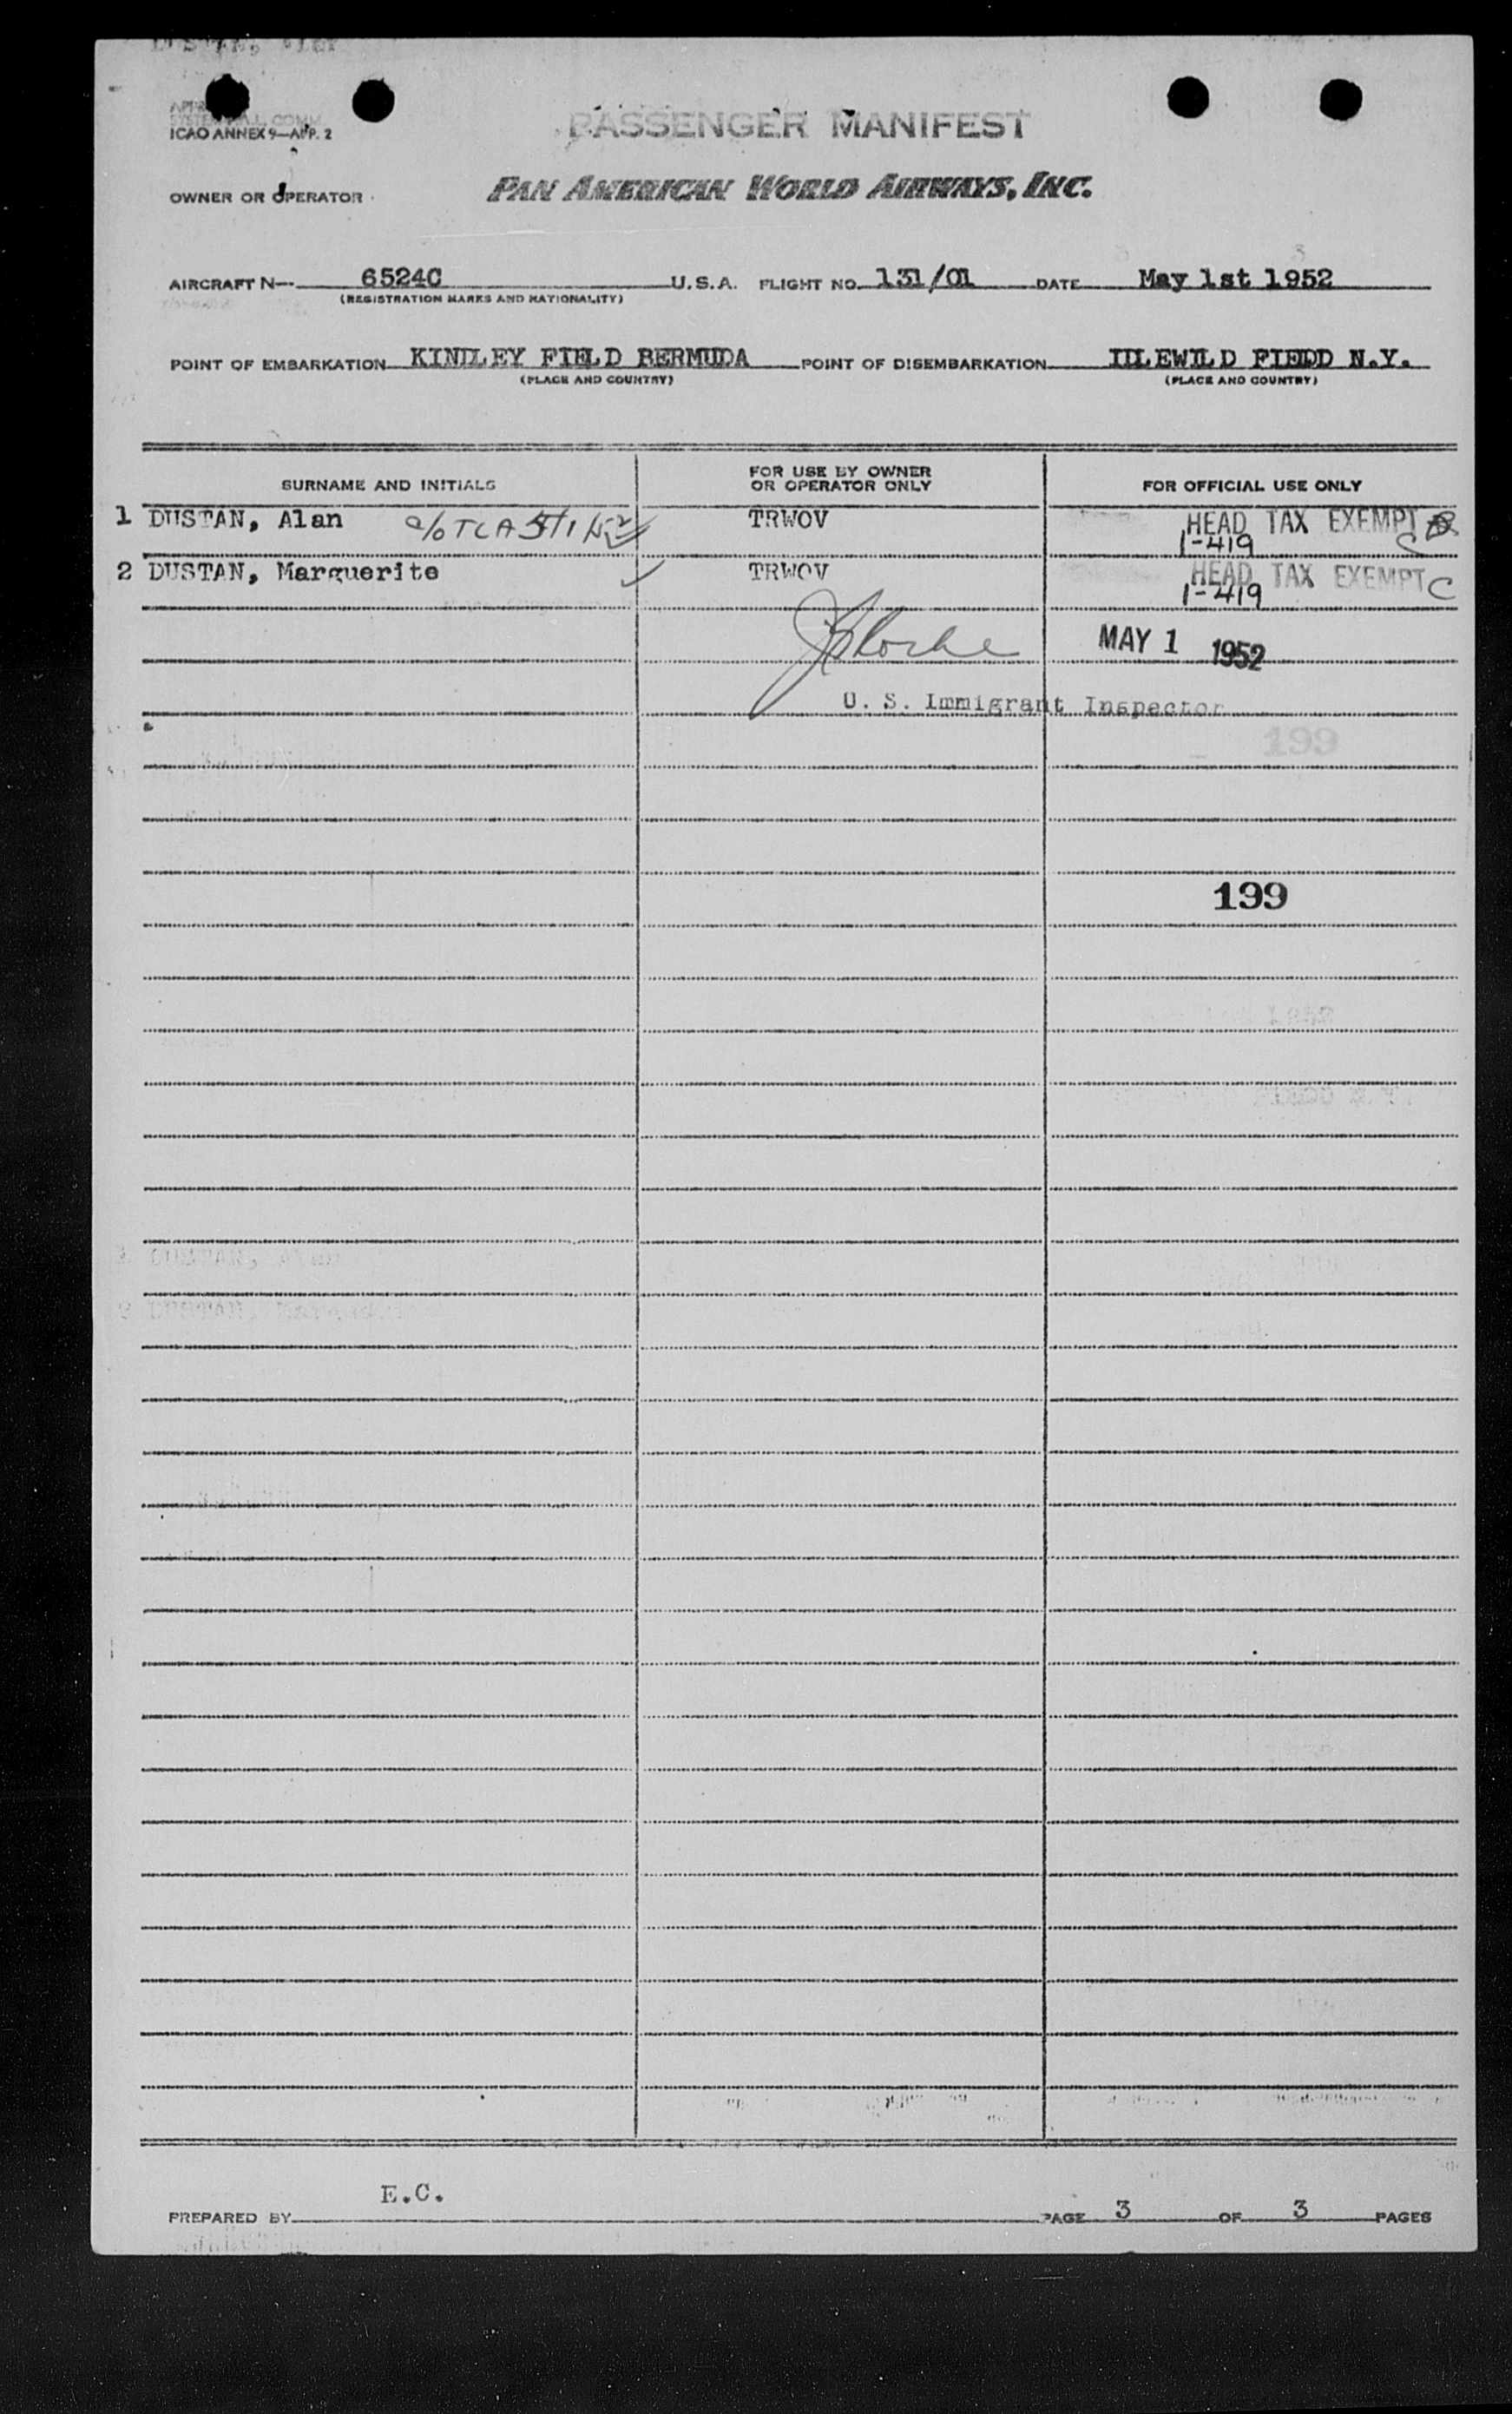 ICAO ANNEX 9—APP. 2
PASSENGER MANIFEST
OWNER OR OPERATOR
PAN AMERICAN WORLD AIRWAYS, INC.
AIRCRAFT N— 6524C U.S.A. FLIGHT NO. 131/01 DATE May 1st 1952
(REGISTRATION MARKS AND NATIONALITY)
POINT OF EMBARKATION KINDLEY FIELD BERMUDA POINT OF DISEMBARKATION IDLEWILD FIEDD N.Y.
(PLACE AND COUNTRY) (PLACE AND COUNTRY)
SURNAME AND INITIALS FOR USE BY OWNER OR OPERATOR ONLY FOR OFFICIAL USE ONLY
1 DUSTAN, Alan a/o TCA 5/1/52 TRWOV HEAD TAX EXEMPT
1-419 C
2 DUSTAN, Marguerite TRWOV HEAD TAX EXEMPT C
1-419
MAY 1 1952
U. S. Immigrant Inspector
199
199
E.C.
PREPARED BY PAGE 3 OF 3 PAGES